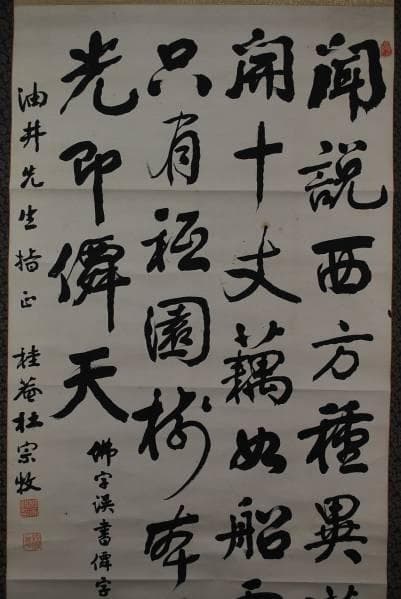 聞説西方種異
開十丈藕如船
只有祇園樹本
光即僊天
佛字誤書僊字
油井先生指正 桂菴杜宗牧